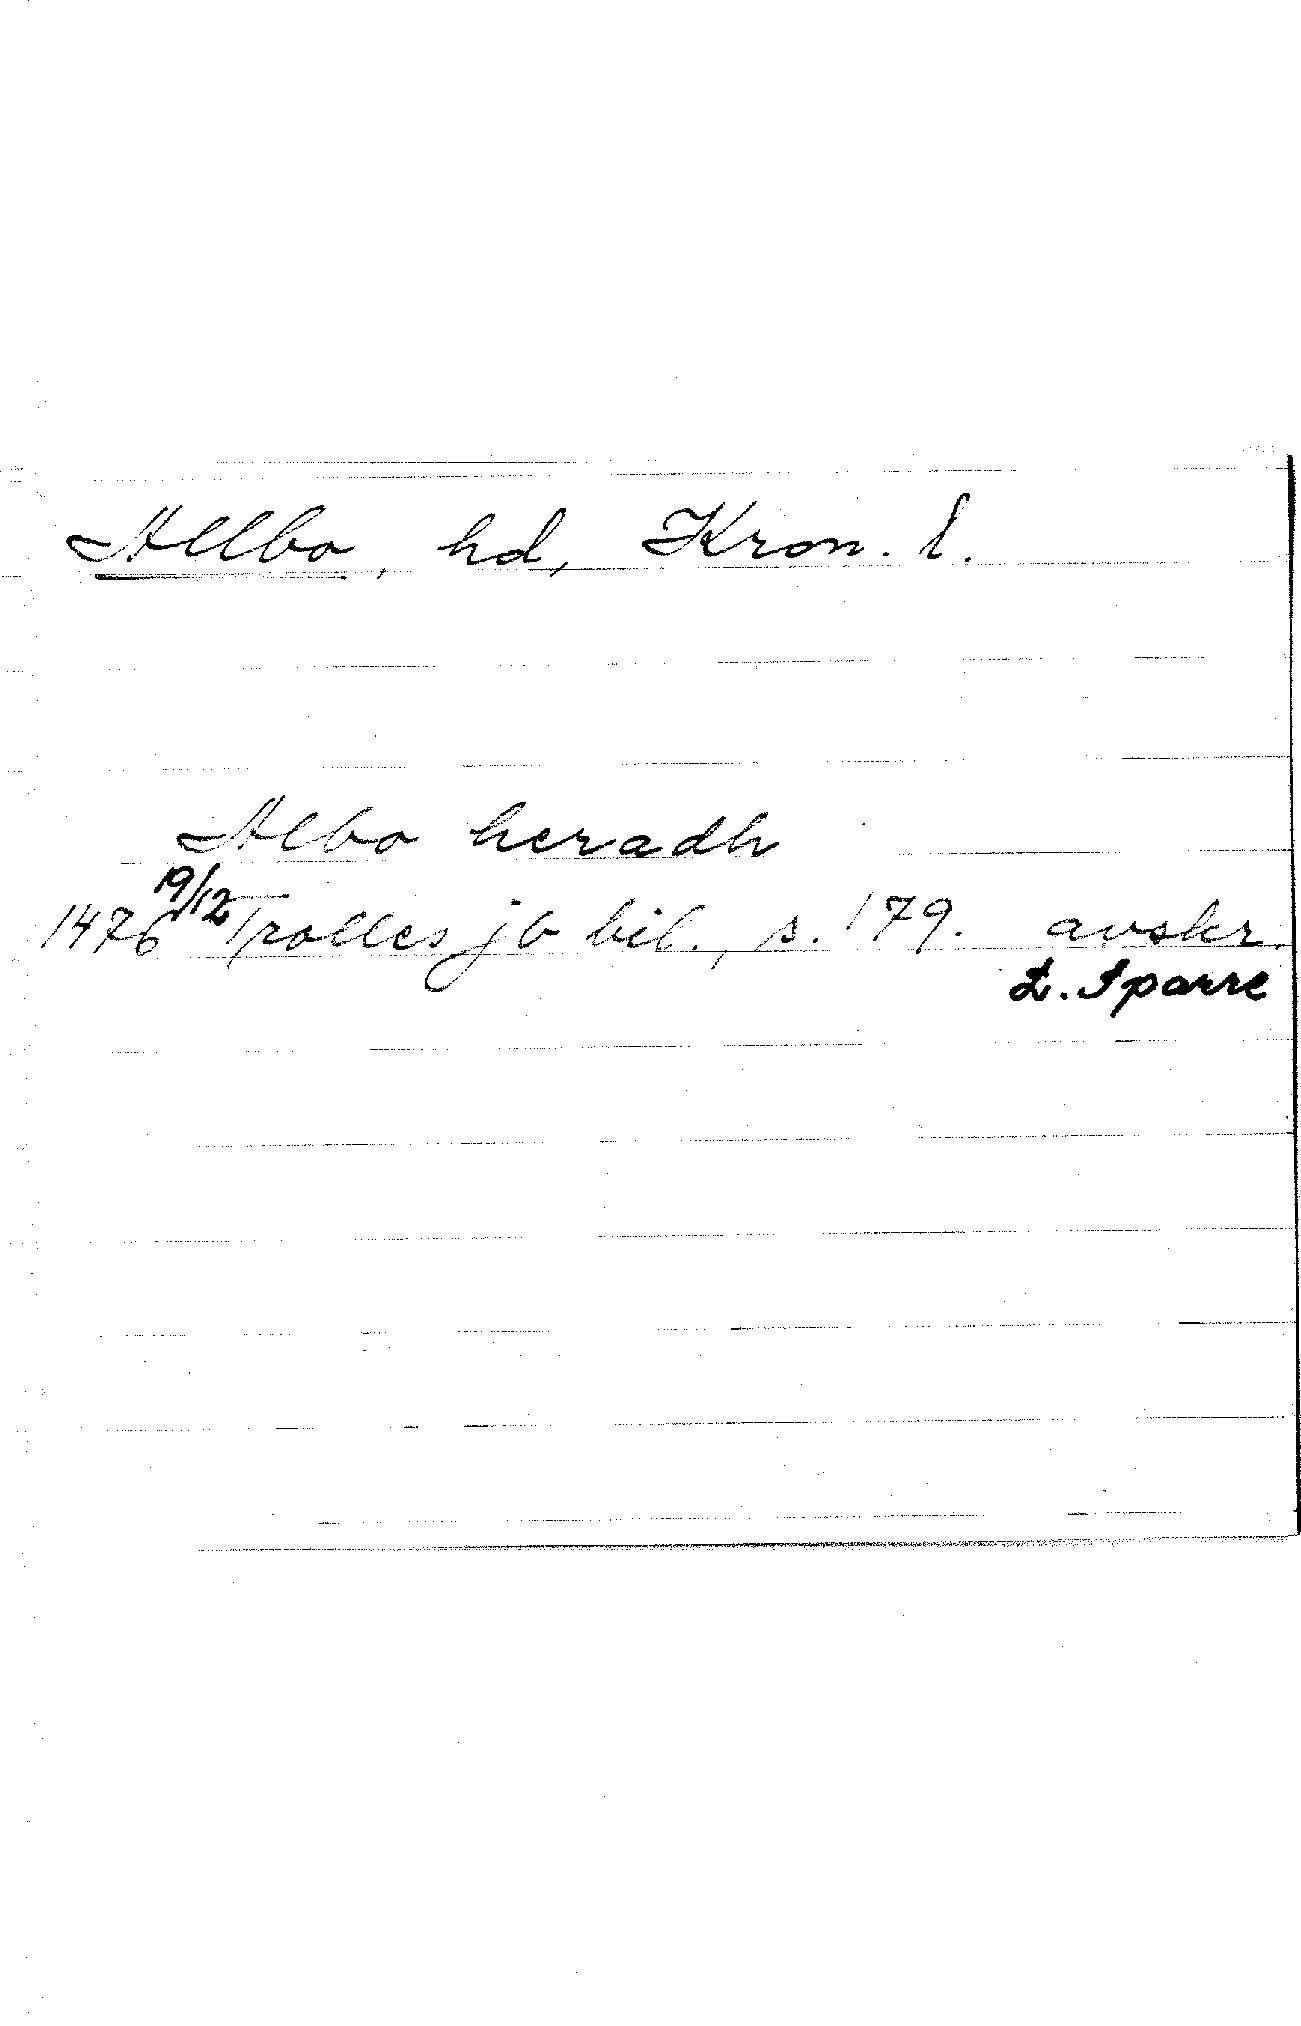 Allbo, hd, Kron. l.
Albo heradh
1476 19/12 Trolles jb bil., s. 179. avskr.
L. Sparre